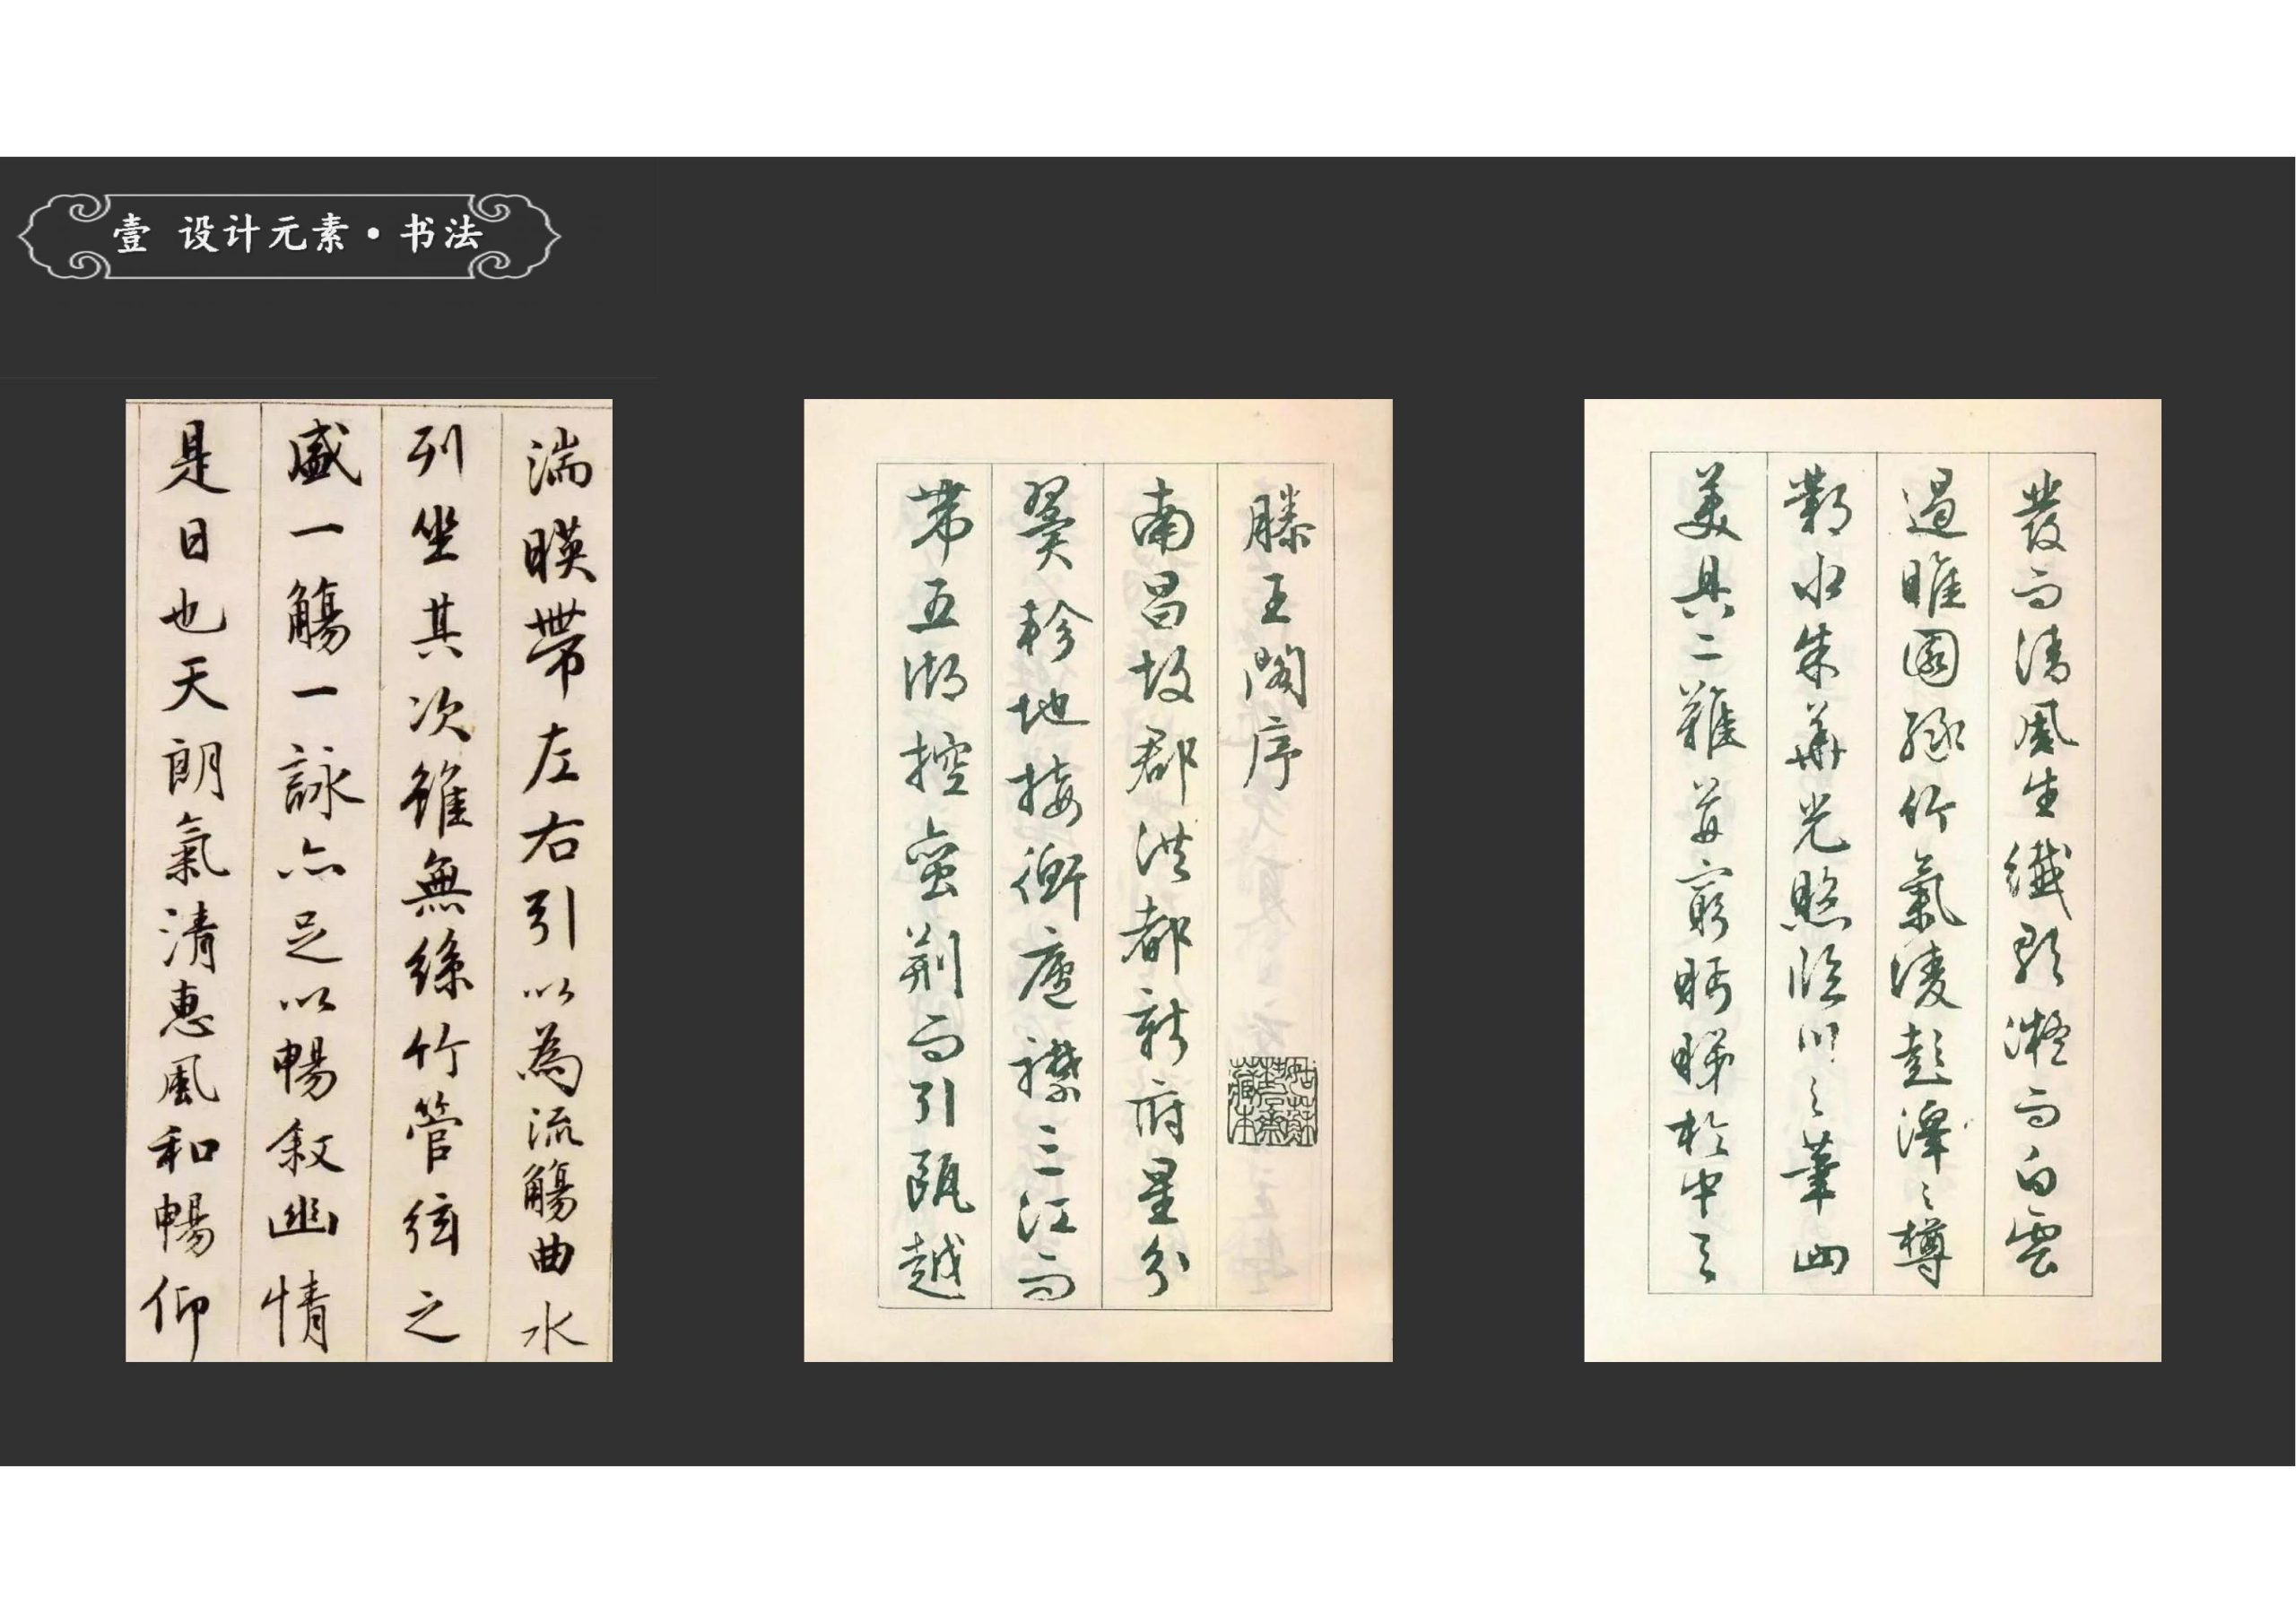 壹 设计元素·书法
湍暎帶左右引以為流觴曲水
列坐其次雖無絲竹管弦之
盛一觴一詠亦足以暢叙幽情
是日也天朗氣清惠風和暢仰
滕王閣序
南昌故郡洪都新府星分
翼軫地接衡廬襟三江而
帶五湖控蠻荊而引甌越
發而清風生纖歌凝而白雲
遏睢園綠竹氣凌彭澤之樽
鄴水朱華光照臨川之筆四
美具二難并窮睇眄於中天